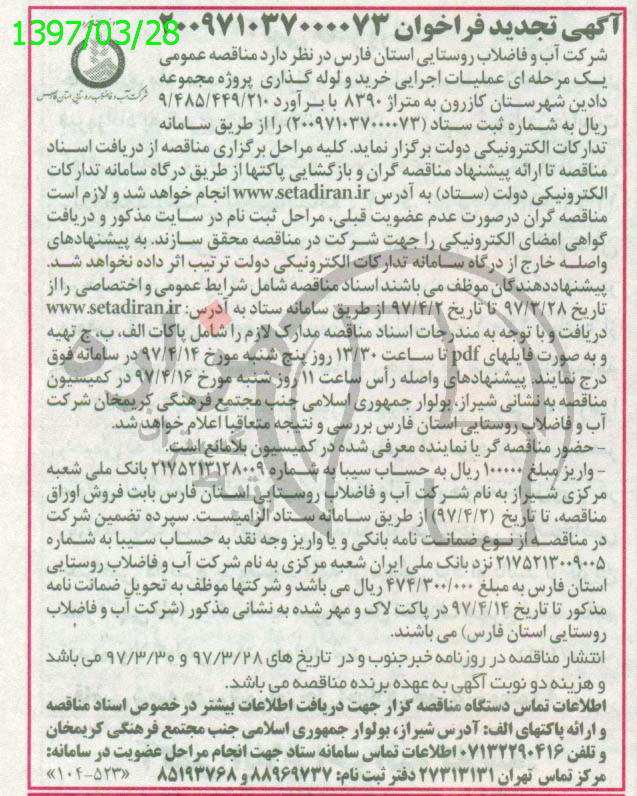 1397/03/28
آگهی تجدید فراخوان ۲۰۰۹۷۱۰۳۷۰۰۰۰۷۳
شرکت آب و فاضلاب روستایی استان فارس در نظر دارد مناقصه عمومی
یک مرحله ای عملیات اجرایی خرید و لوله گذاری پروژه مجموعه
دادین شهرستان کازرون به متراژ ۸۳۹۰ با برآورد ۹/۴۸۵/۴۴۹/۲۱۰
ریال به شماره ثبت ستاد (۲۰۰۹۷۱۰۳۷۰۰۰۰۷۳) را از طریق سامانه
تدارکات الکترونیکی دولت برگزار نماید. کلیه مراحل برگزاری مناقصه از دریافت اسناد
مناقصه تا ارائه پیشنهاد مناقصه گران و بازگشایی پاکتها از طریق درگاه سامانه تدارکات
الکترونیکی دولت (ستاد) به آدرس www.setadiran.ir انجام خواهد شد و لازم است
مناقصه گران درصورت عدم عضویت قبلی، مراحل ثبت نام در سایت مذکور و دریافت
گواهی امضای الکترونیکی را جهت شرکت در مناقصه محقق سازند. به پیشنهادهای
واصله خارج از درگاه سامانه تدارکات الکترونیکی دولت ترتیب اثر داده نخواهد شد.
پیشنهاددهندگان موظف می باشند اسناد مناقصه شامل شرایط عمومی و اختصاصی را از
تاریخ ۹۷/۳/۲۸ تا تاریخ ۹۷/۴/۲ از طریق سامانه ستاد به آدرس: www.setadiran.ir
دریافت و با توجه به مندرجات اسناد مناقصه مدارک لازم را شامل پاکات الف، ب، ج تهیه
و به صورت فایلهای pdf تا ساعت ۱۳/۳۰ روز پنج شنبه مورخ ۹۷/۴/۱۴ در سامانه فوق
درج نمایند. پیشنهادهای واصله رأس ساعت ۱۱ روز شنبه مورخ ۹۷/۴/۱۶ در کمیسیون
مناقصه به نشانی شیراز، بولوار جمهوری اسلامی جنب مجتمع فرهنگی کریمخان شرکت
آب و فاضلاب روستایی استان فارس بررسی و نتیجه متعاقبا اعلام خواهد شد.
- حضور مناقصه گر یا نماینده معرفی شده در کمیسیون بلامانع است.
- واریز مبلغ ۱۰۰۰۰۰ ریال به حساب سیبا به شماره ۲۱۷۵۲۱۳۱۲۸۰۰۹ بانک ملی شعبه
مرکزی شیراز به نام شرکت آب و فاضلاب روستایی استان فارس بابت فروش اوراق
مناقصه، تا تاریخ (۹۷/۴/۲) از طریق سامانه ستاد الزامیست. سپرده تضمین شرکت
در مناقصه از نوع ضمانت نامه بانکی و یا واریز وجه نقد به حساب سیبا به شماره
۲۱۷۵۲۱۳۰۰۹۰۰۵ نزد بانک ملی ایران شعبه مرکزی به نام شرکت آب و فاضلاب روستایی
استان فارس به مبلغ ۴۷۴/۳۰۰/۰۰۰ ریال می باشد و شرکتها موظف به تحویل ضمانت نامه
مذکور تا تاریخ ۹۷/۴/۱۴ در پاکت لاک و مهر شده به نشانی مذکور (شرکت آب و فاضلاب
روستایی استان فارس) می باشند.
انتشار مناقصه در روزنامه خبرجنوب و در تاریخ های ۹۷/۳/۲۸ و ۹۷/۳/۳۰ می باشد
و هزینه دو نوبت آگهی به عهده برنده مناقصه می باشد.
اطلاعات تماس دستگاه مناقصه گزار جهت دریافت اطلاعات بیشتر درخصوص اسناد مناقصه
و ارائه پاکتهای الف: آدرس شیراز، بولوار جمهوری اسلامی جنب مجتمع فرهنگی کریمخان
و تلفن ۰۷۱۳۲۲۹۰۴۱۶ اطلاعات تماس سامانه ستاد جهت انجام مراحل عضویت در سامانه:
مرکز تماس تهران ۲۷۳۱۳۱۳۱ دفتر ثبت نام: ۸۸۹۶۹۷۳۷ و ۸۵۱۹۳۷۶۸ «۱۰۴-۵۲۳»